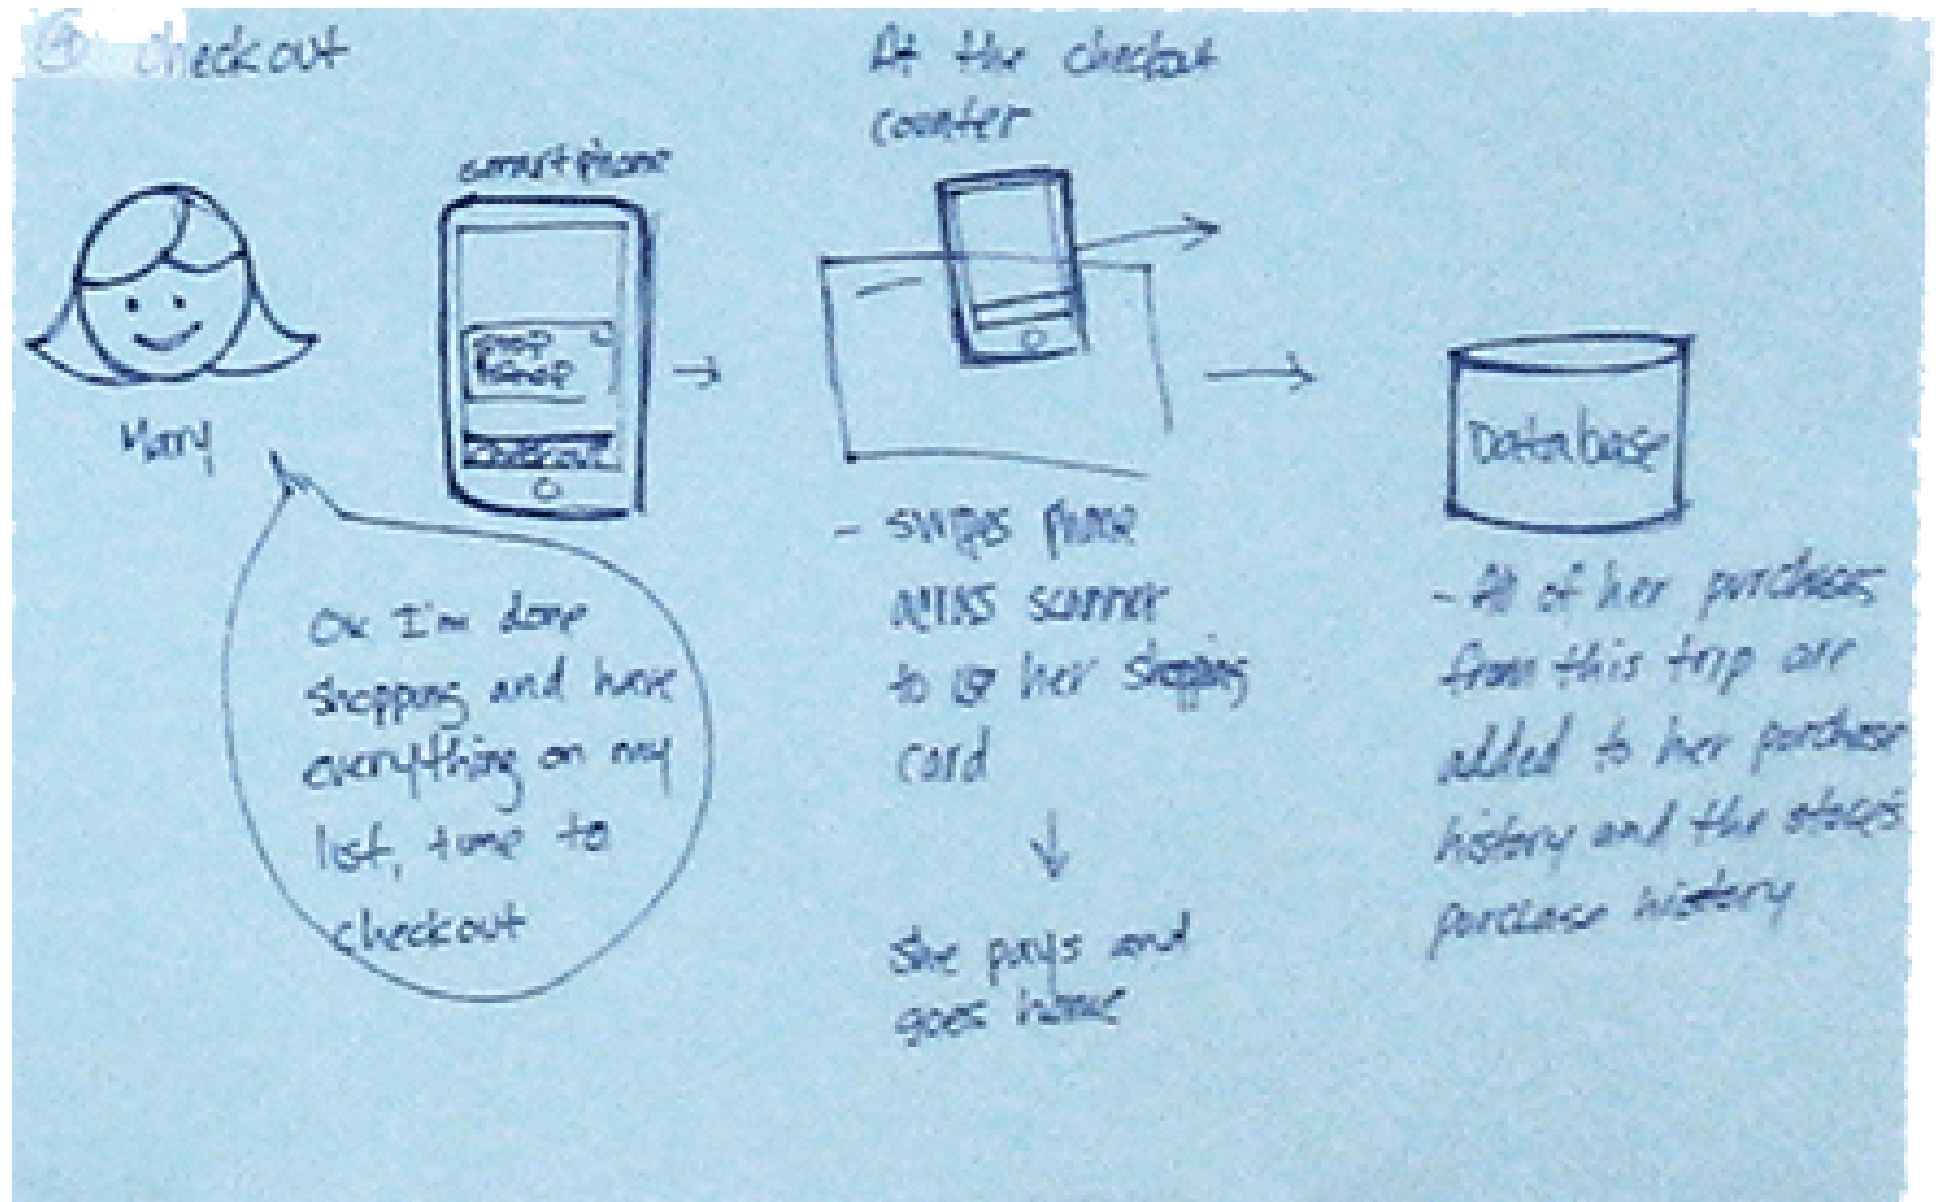 ④ checkout
smartphone
Mary
stop
& shop
checkout
Ok I'm done
shopping and have
everything on my
list, time to
checkout
At the checkout
counter
- swipes phone
across scanner
to her shopping
card
she pays and
goes home
Database
- All of her purchases
from this trip are
added to her purchase
history and the store's
purchase history